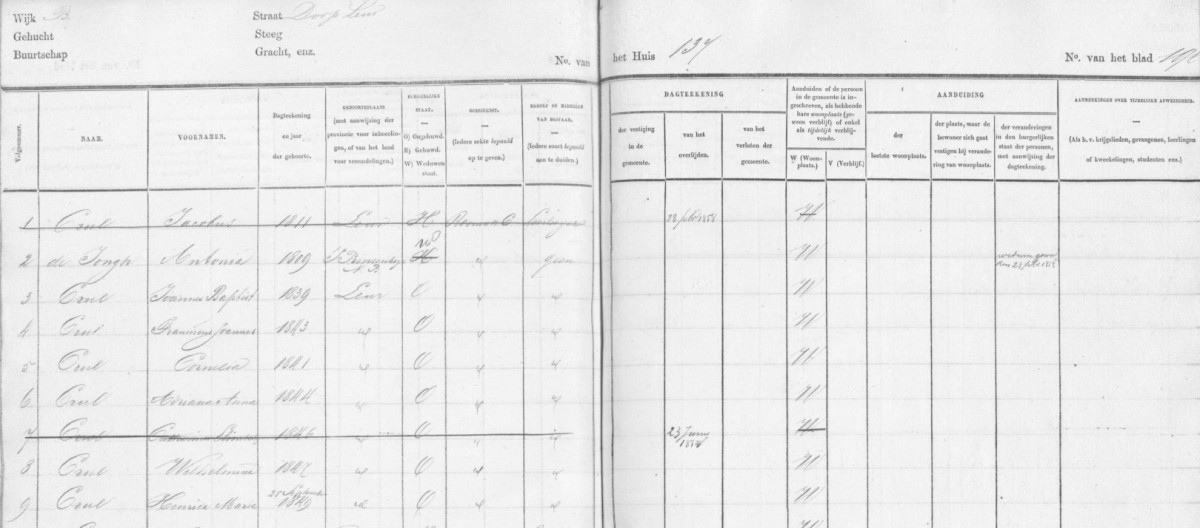 Wijk B Straat Dorp Leur
Gehucht Steeg
Buurtschap Gracht, enz.
No. van het Huis 137 No. van het blad
Volgnommer.
NAAM.
VOORNAMEN.
Dagteekening
en jaar
der geboorte.
GEBOORTEPLAATS
(met aanwijzing der
provincie voor inboorlin-
gen, of van het land
voor vreemdelingen.)
BURGERLIJKE
STAAT.
O) Ongehuwd.
H) Gehuwd.
W) Weduwen-
staat.
GODSDIENST.
(Iedere sekte bepaald
op te geven.)
BEROEP OF MIDDELEN
VAN BESTAAN.
(Iedere soort bepaald
aan te duiden.)
DAGTEEKENING
der vestiging
in de
gemeente.
van het
overlijden.
van het
verlaten der
gemeente.
Aanduiden of de persoon
in de gemeente is in-
geschreven, als hebbende
hare woonplaats (ge-
woon verblijf) of enkel
als tijdelijk verblij-
vende.
W (Woon-
plaats.)
V (Verblijf.)
AANDUIDING
der
laatste woonplaats.
der plaats, waar de
bewoner zich gaat
vestigen bij verande-
ring van woonplaats.
der veranderingen
in den burgerlijken
staat der personen,
met aanwijzing der
dagteekening.
AANMERKINGEN OVER TIJDELIJKE AFWEZIGHEID.
(Als b. v. krijgslieden, gevangenen, leerlingen
of kweekelingen, studenten enz.)
1 Crul Jacobus 1811 Leur H
2 de Jongh Antonia 1809 W H " geen
3 Crul Joannes Baptist 1839 Leur O " "
4 Crul Joannes 1843 " O " "
5 Crul Cornelia 1841 " O " "
6 Crul Adriana Anna 1844 " O " "
7 Crul 1846 " O " " 23 Juny
8 Crul Wilhelmina 1847 " O " "
9 Crul Henrica Maria 1849 O " "